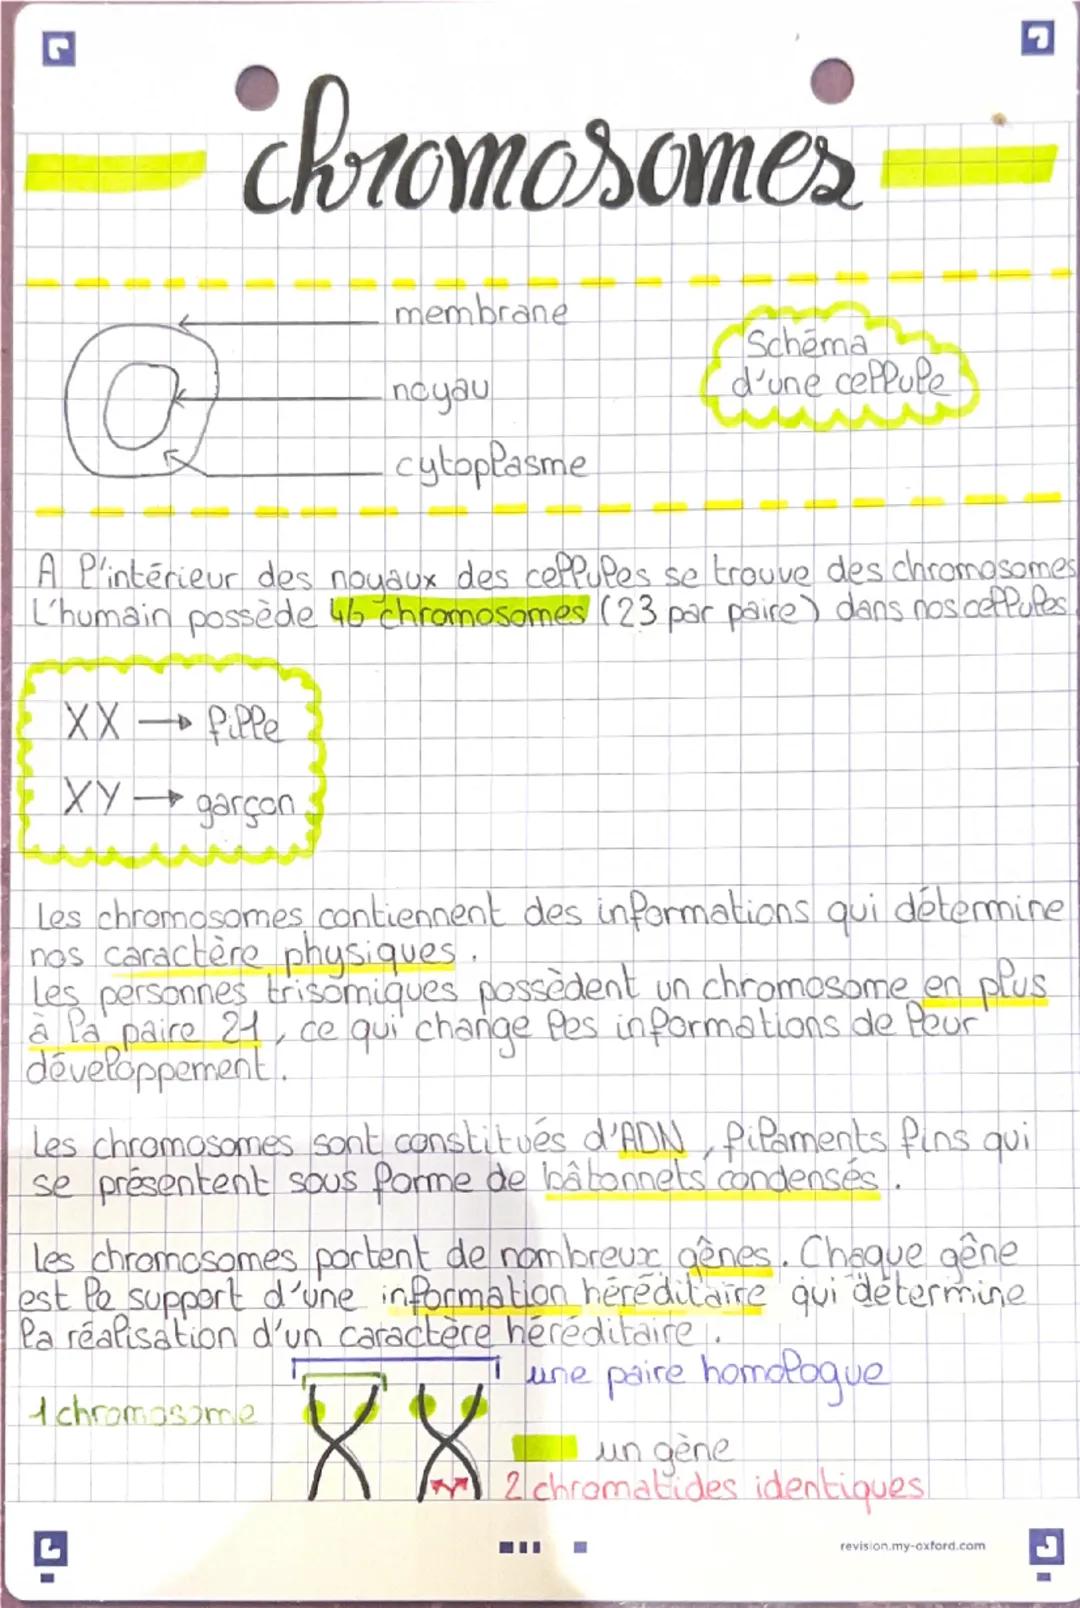 chromosomes
membrane
Schéma
d'une cellule
noyau
cytoplasme
A l'intérieur des noyaux des cellules se trouve des chromosomes
L'humain possède 46 chromosomes (23 par paire) dans nos cellules
XX → fille
XY → garçon
Les chromosomes contiennent des informations qui détermine
nos caractère physiques.
Les personnes trisomiques possèdent un chromosome en plus
à la paire 21, ce qui change les informations de leur
développement.
Les chromosomes sont constitués d'ADN, filaments fins qui
se présentent sous forme de bâtonnets condensés.
Les chromosomes portent de nombreux gênes. Chaque gêne
est le support d'une information héréditaire qui détermine
la réalisation d'un caractère héréditaire.
une paire homologue
1 chromosome
un gène
2 chromatides identiques
revision.my-oxford.com